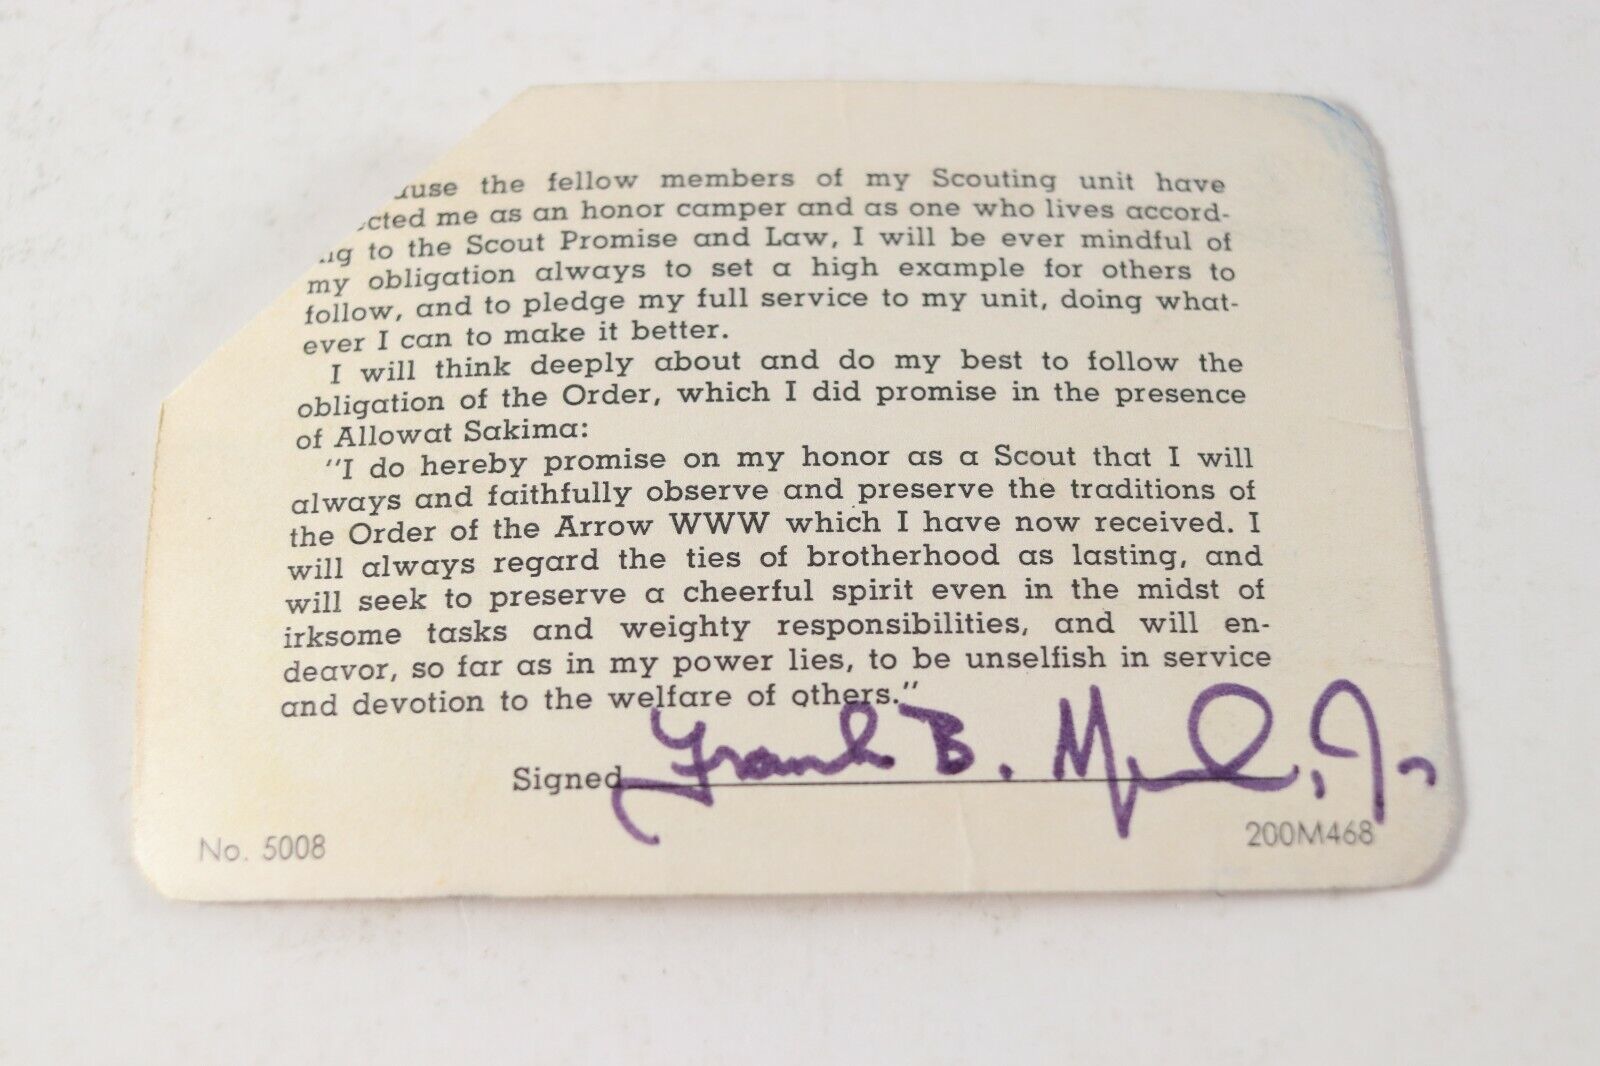 the fellow members of my Scouting unit have
me as an honor camper and as one who lives accord-
to the Scout Promise and Law, I will be ever mindful of
my obligation always to set a high example for others to
follow, and to pledge my full service to my unit, doing what-
ever I can to make it better.
I will think deeply about and do my best to follow the
obligation of the Order, which I did promise in the presence
of Allowat Sakima:
"I do hereby promise on my honor as a Scout that I will
always and faithfully observe and preserve the traditions of
the Order of the Arrow WWW which I have now received. I
will always regard the ties of brotherhood as lasting, and
will seek to preserve a cheerful spirit even in the midst of
irksome tasks and weighty responsibilities, and will en-
deavor, so far as in my power lies, to be unselfish in service
and devotion to the welfare of others."
Signed Frank B. Jr.
No. 5008 200M468